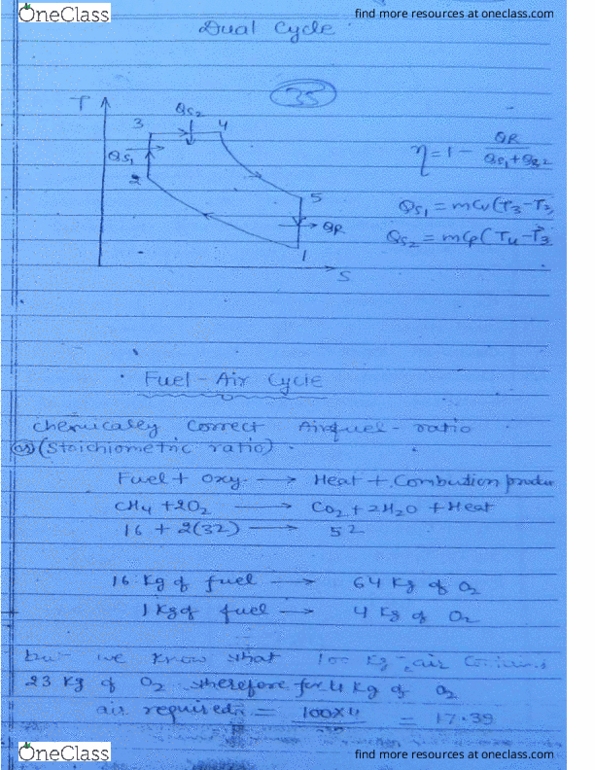 OneClass
find more resources at oneclass.com
Dual Cycle
35
T
Qs2
3
4
Qs1
2
5
QR
1
S
η = 1 - QR / Qs1 + Qs2
Qs1 = mCv(T3-T2
Qs2 = mCp(T4-T3
Fuel - Air Cycle
chemically correct Airfuel-ratio
(or) (Stoichiometric ratio).
Fuel + Oxy. → Heat + Combustion produ
CH4 + 2O2 → CO2 + 2H2O + Heat
16 + 2(32) → 52
16 Kg of fuel → 64 Kg of O2
1 Kg of fuel → 4 Kg of O2
but we know that 100 Kg air
23 Kg of O2 therefore for 4 Kg of O2
air required = 100×4 = 17.39
OneClass
find more resources at oneclass.com